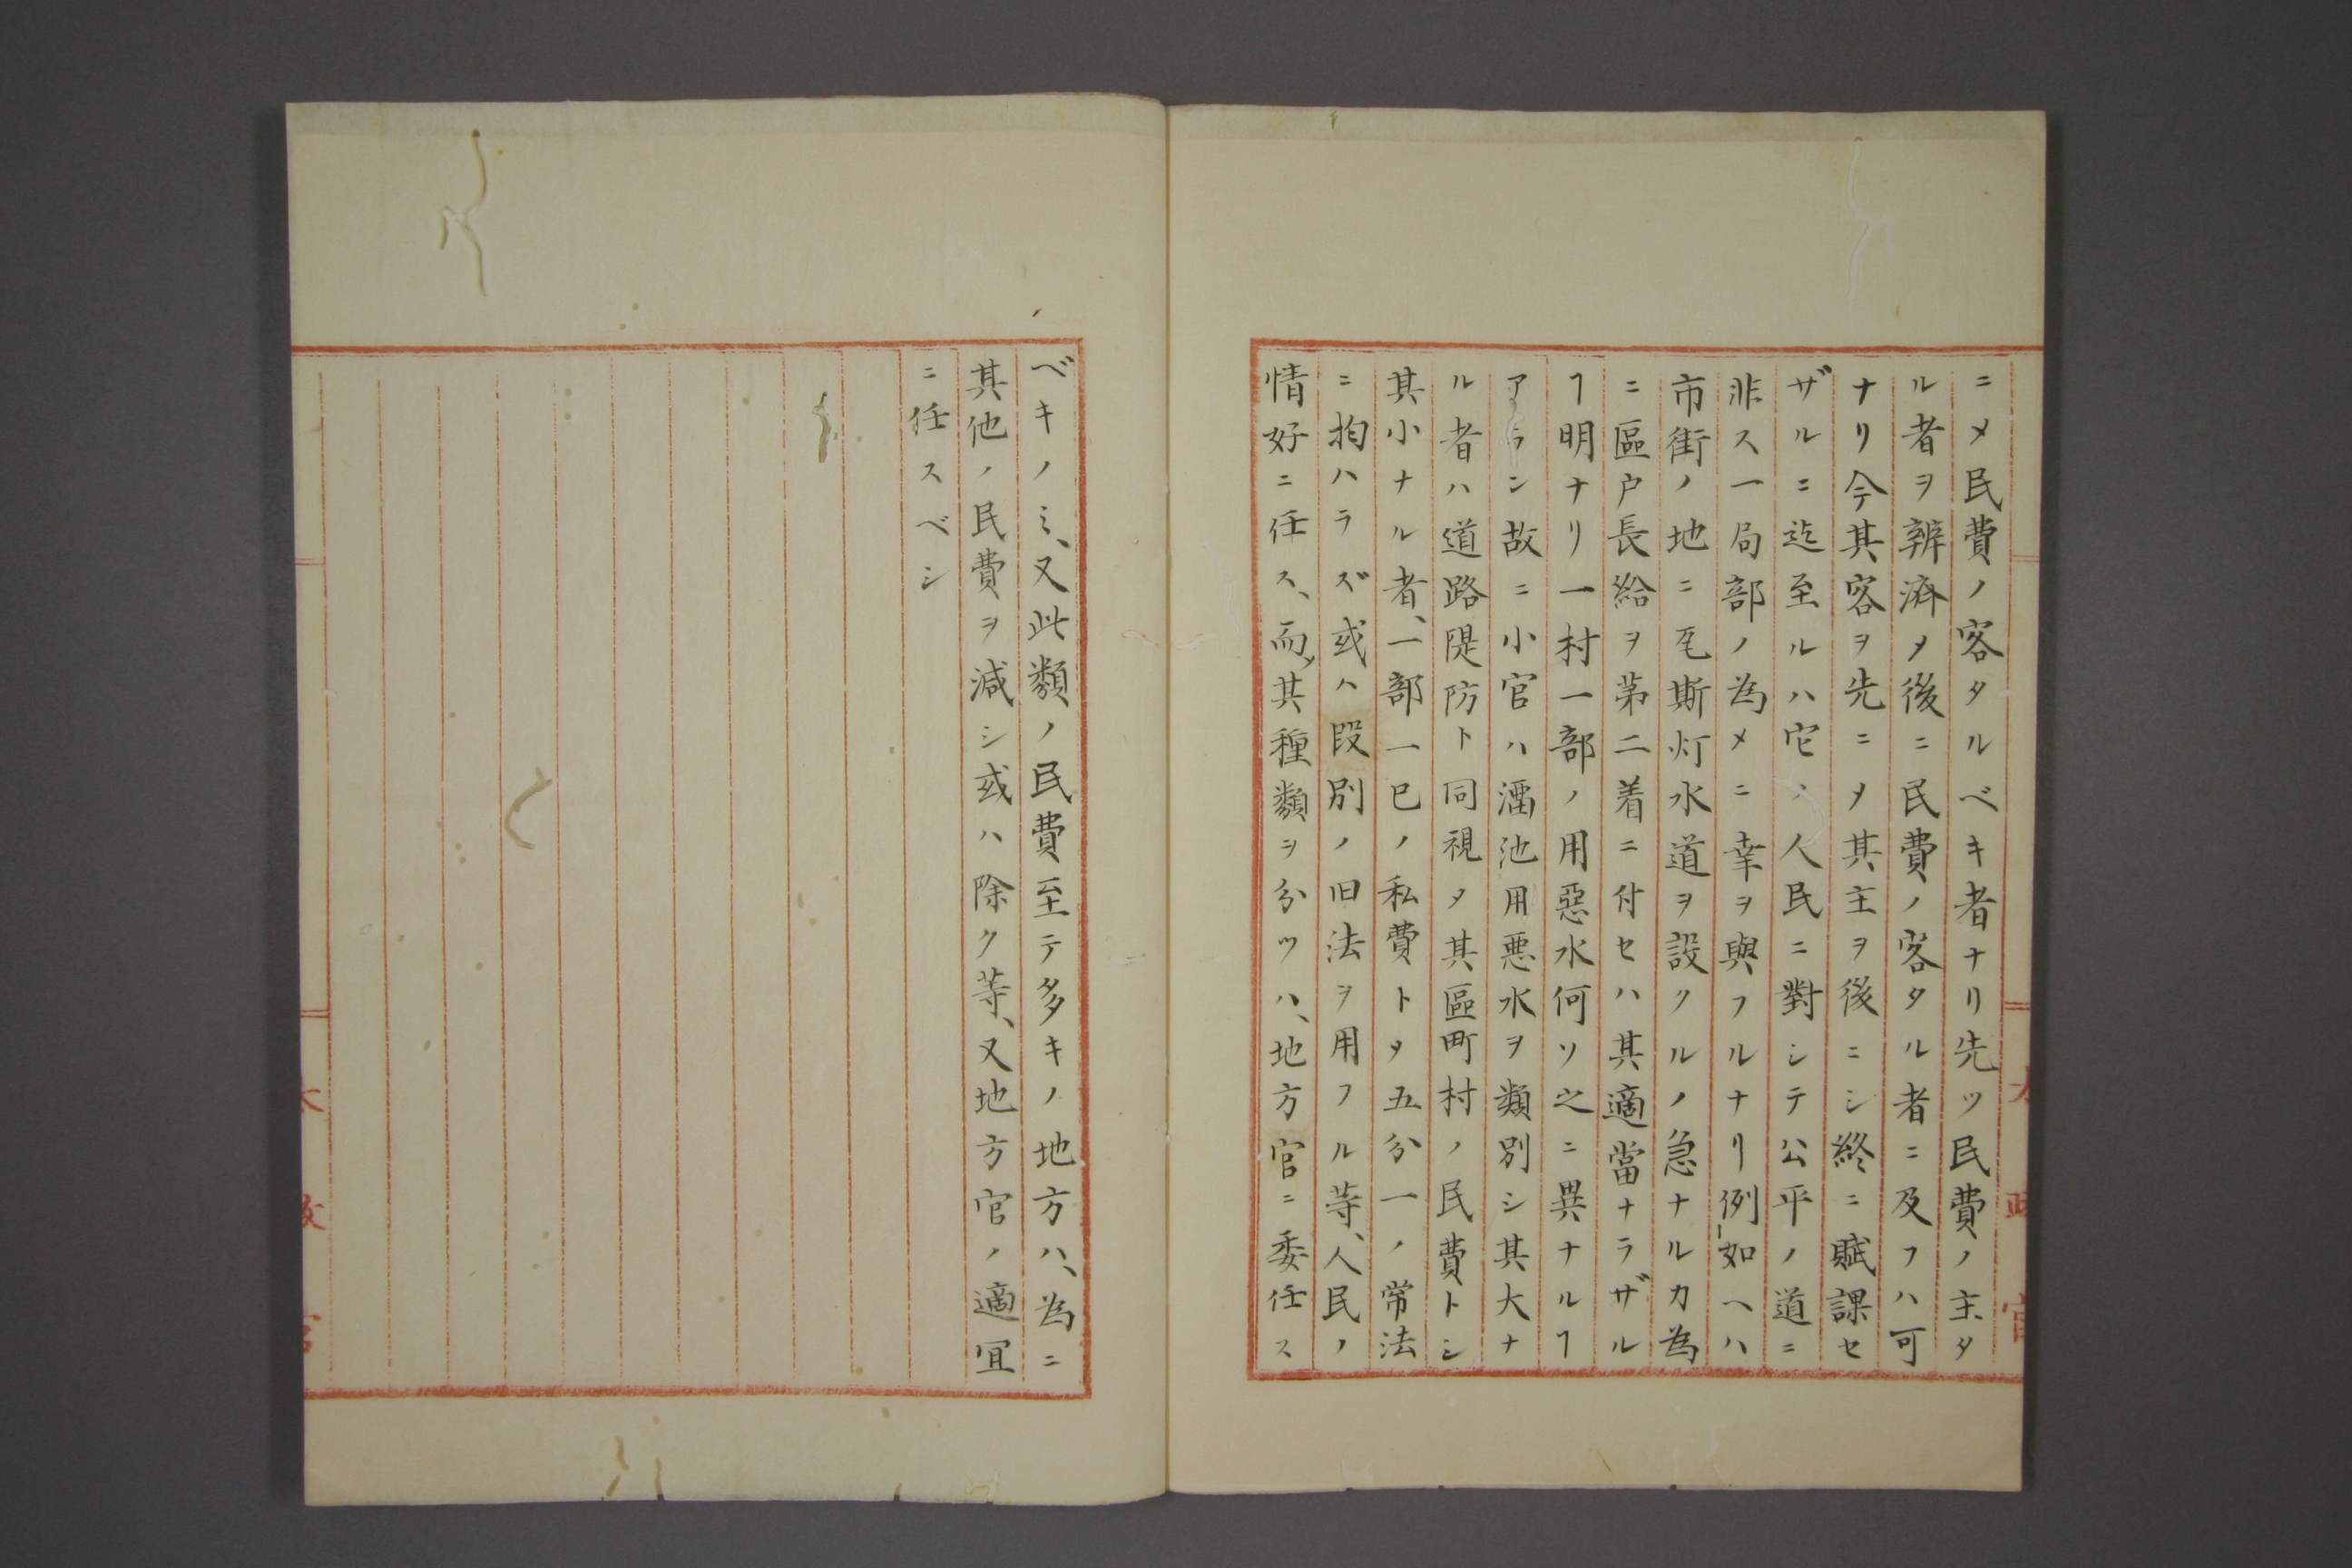 ニメ民費ノ客タルベキ者ナリ先ツ民費ノ主タ
ル者ヲ辨済メ後ニ民費ノ客タル者ニ及フハ可
ナリ今其客ヲ先ニメ其主ヲ後ニシ終ニ賦課セ
ザルニ迄至ルハ它ノ人民ニ對シテ公平ノ道ニ
非ス一局部ノ為メニ幸ヲ與フルナリ例如ヘハ
市街ノ地ニ瓦斯灯水道ヲ設クルノ急ナルカ為
ニ區戸長給ヲ第二着ニ付セハ其適當ナラザル
ヿ明ナリ一村一部ノ用惡水何ソ之ニ異ナルヿ
アラン故ニ小官ハ溜池用悪水ヲ類別シ其大ナ
ル者ハ道路隄防ト同視メ其區町村ノ民費トシ
其小ナル者、一部一已ノ私費トメ五分一ノ常法
ニ拘ハラズ或ハ段別ノ旧法ヲ用フル等、人民ノ
情好ニ任ス、而メ其種類ヲ分ツハ、地方官ニ委任ス
ベキノミ、又此類ノ民費至テ多キノ地方ハ、為ニ
其他ノ民費ヲ減シ或ハ除ク等、又地方官ノ適冝
ニ任スベシ